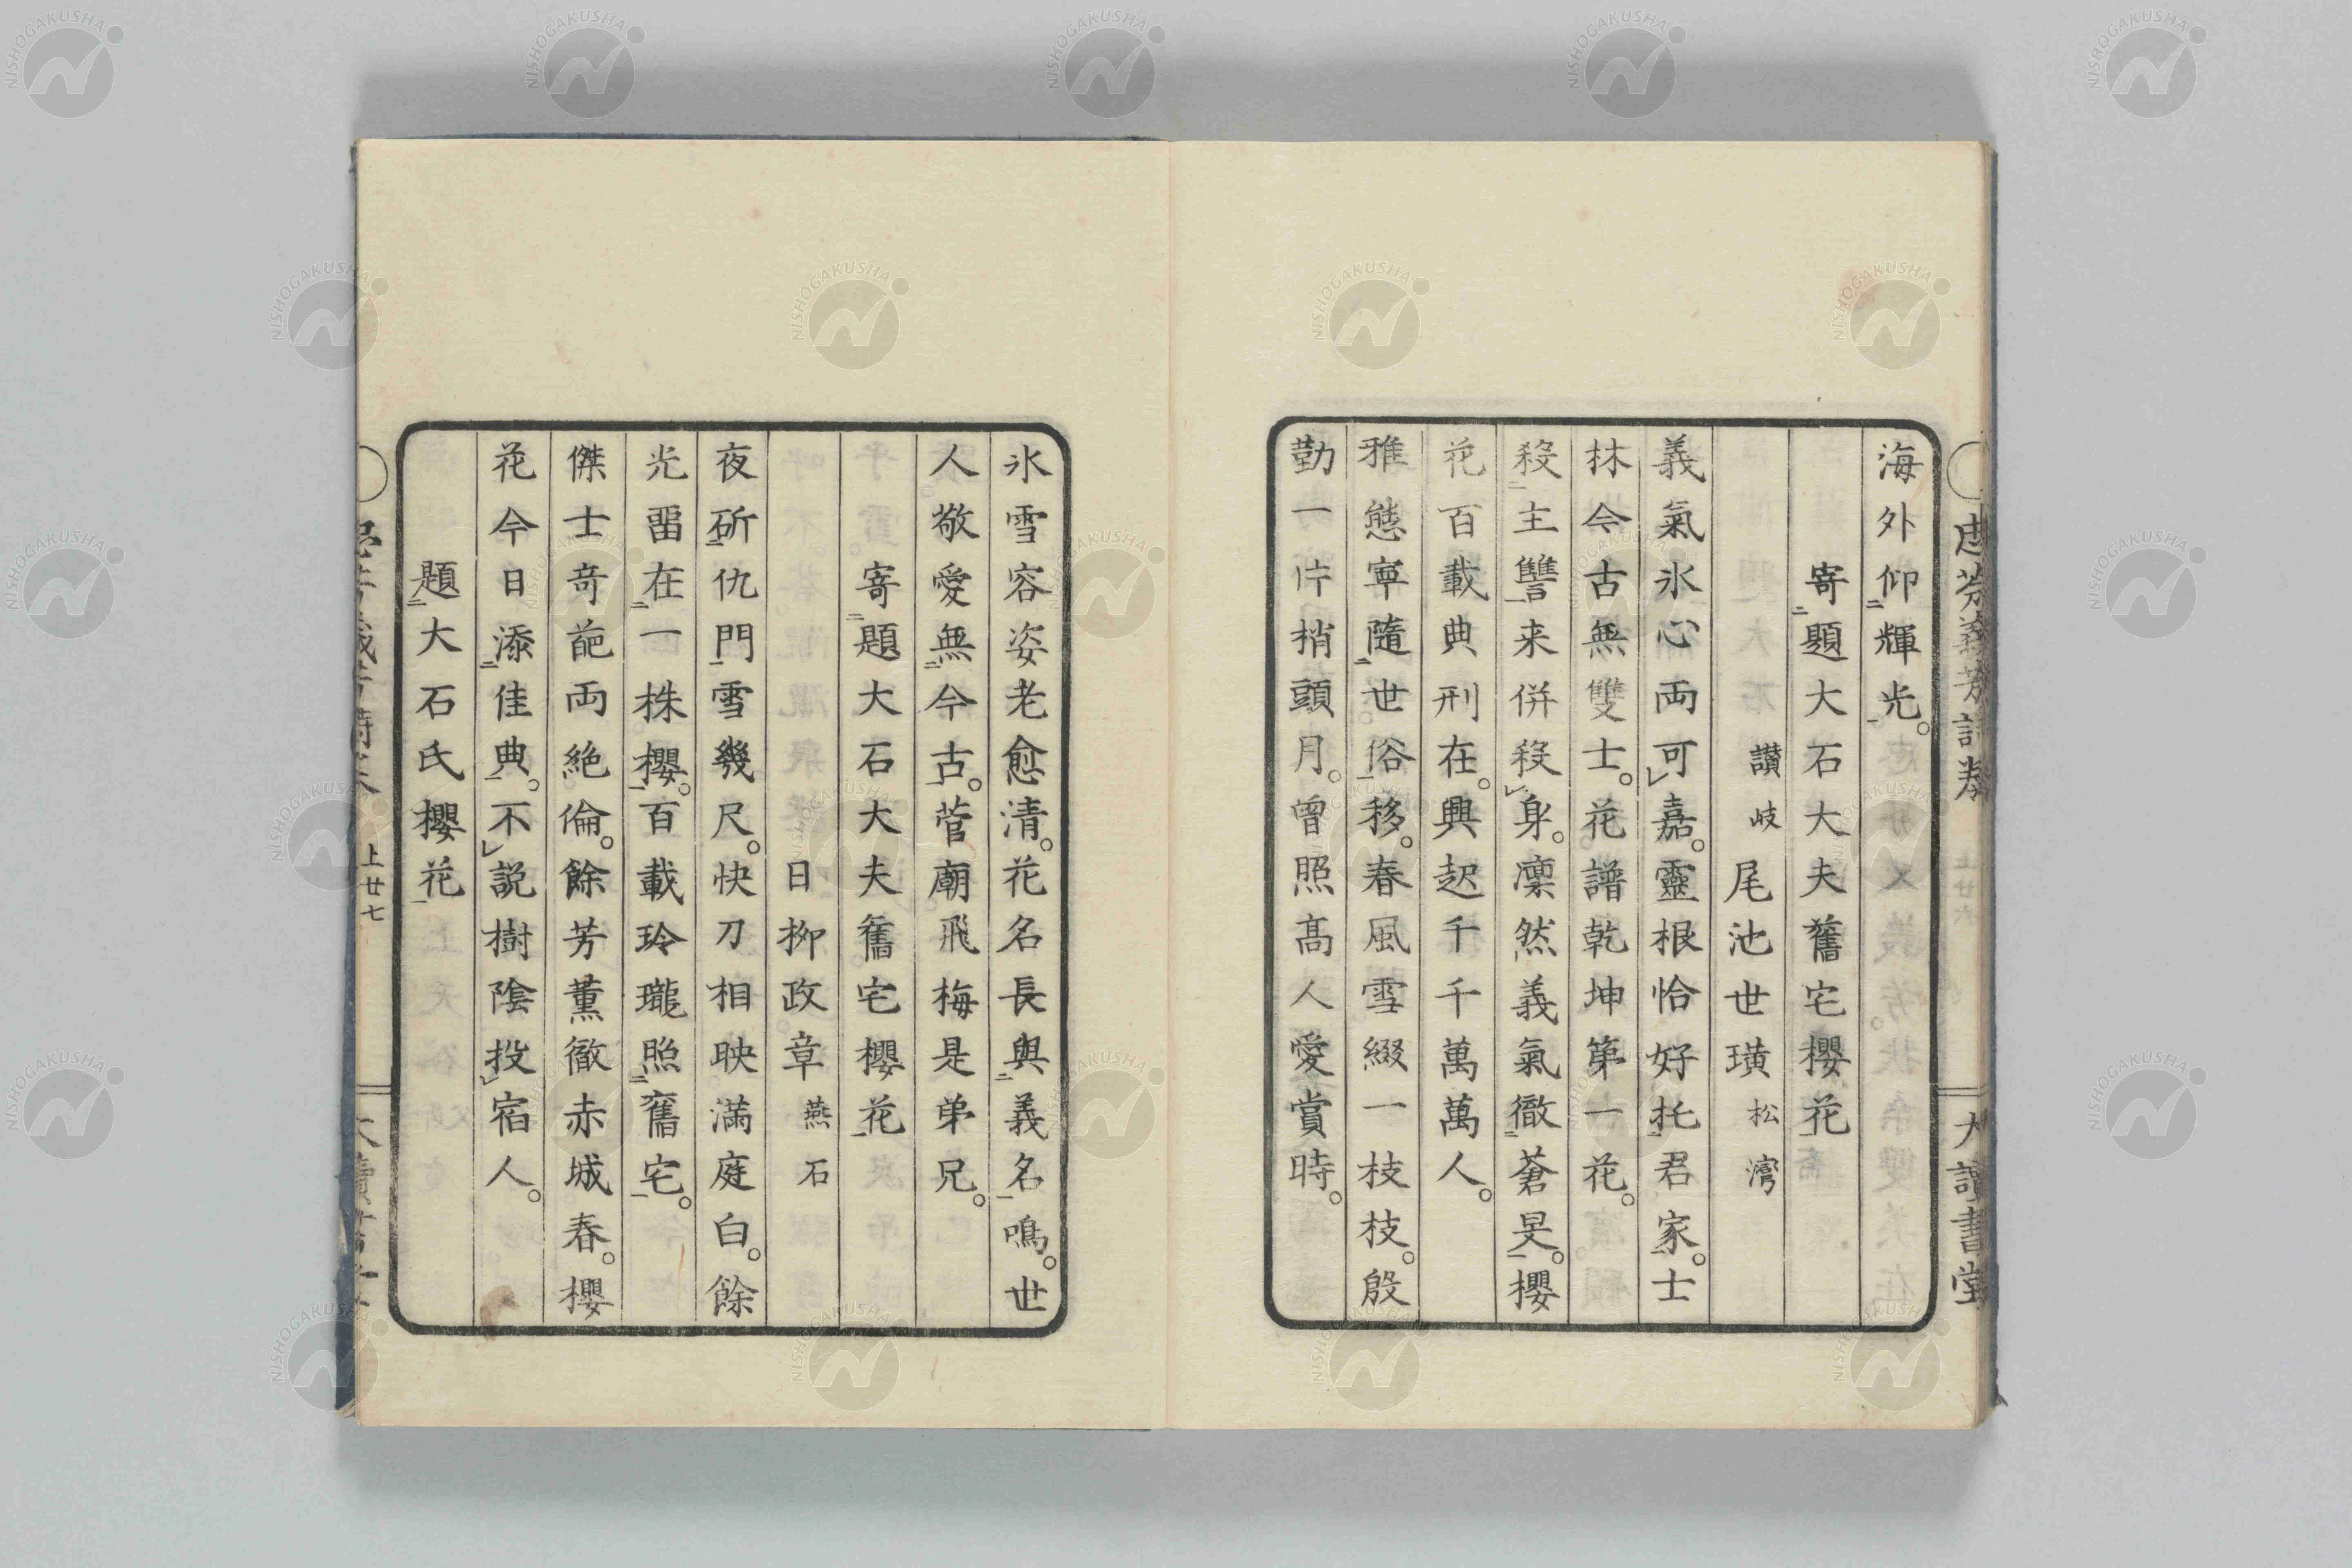 海外仰輝光。
寄題大石大夫舊宅櫻花
讃岐 尾池世璜 松灣
義氣氷心両可嘉。靈根恰好托君家。士
林今古無雙士。花譜乾坤第一花。
殺主讐来併殺身。凛然義氣徹蒼旻。櫻
花百載典刑在。興起千千萬萬人。
雅態寧隨世俗移。春風雪綴一枝枝。殷
勤一片梢頭月。曾照髙人愛賞時。
氷雪容姿老愈清。花名長與義名鳴。世
人敬愛無今古。菅廟飛梅是弟兄。
寄題大石大夫舊宅櫻花
日柳政章 燕石
夜斫仇門雪幾尺。快刀相映滿庭白。餘
光畱在一株櫻。百載玲瓏照舊宅。
傑士奇葩両絶倫。餘芳薫徹赤城春。櫻
花今日添佳典。不説樹陰投宿人。
題大石氏櫻花
上廿七
大讀書堂
NISHOGAKUSHA